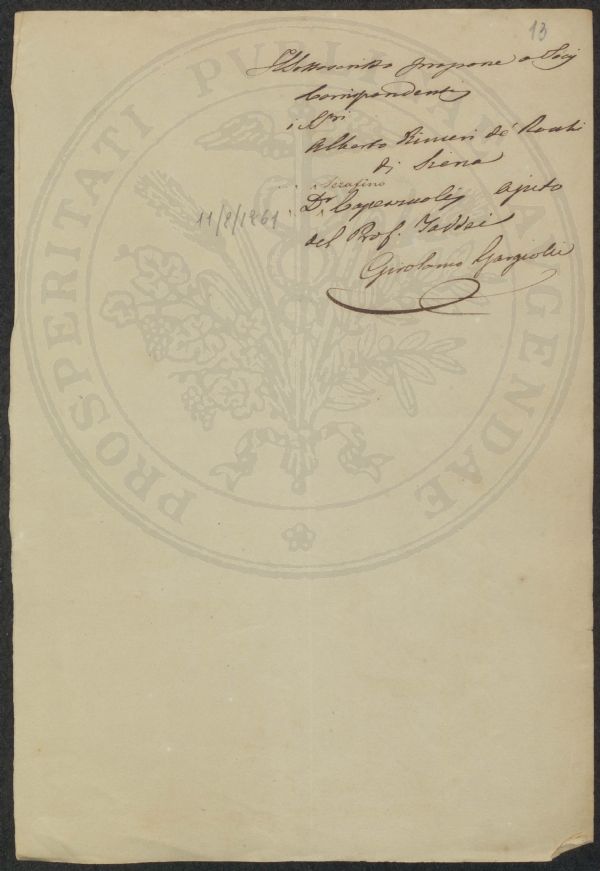 13
Il Sottoscritto propone a Socj
Corrispondenti
i Sri
Alberto Rinieri de' Rocchi
di Siena
Serafino
Dr. Capezzuoli, ajuto
del Prof. Taddei
Girolamo Gargiolli
11/8/1861
PROSPERITATI PUBLICAE AUGENDAE